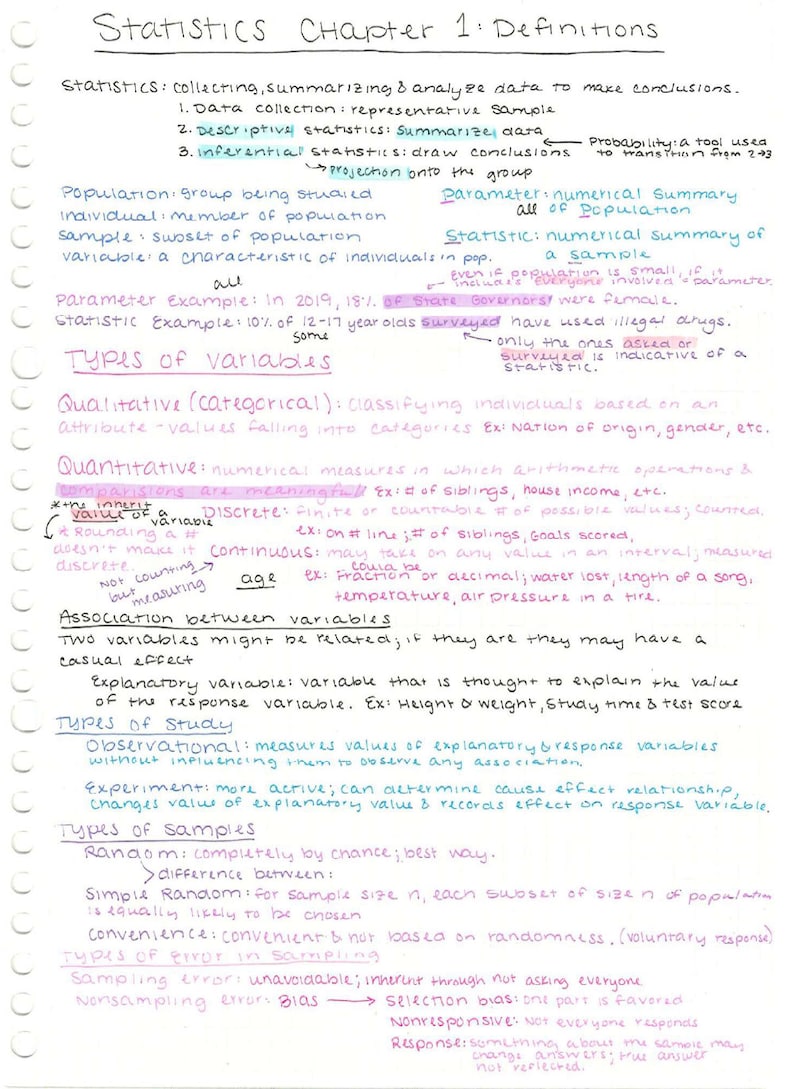 Statistics Chapter 1: Definitions
Statistics: collecting, summarizing & analyze data to make conclusions.
1. Data collection: representative sample
2. Descriptive statistics: summarize data
3. Inferential statistics: draw conclusions
Probability: a tool used
to transition from 2→3
↳ projection onto the group
Population: group being studied
individual: member of population
sample: subset of population
variable: a characteristic of individuals in pop.
Parameter: numerical summary
all of Population
Statistic: numerical summary of
a sample
Even if population is small, if it
includes everyone involved = parameter.
all
Parameter Example: In 2019, 18% of State Governors were female.
Statistic Example: 10% of 12-17 year olds surveyed have used illegal drugs.
some
only the ones asked or
surveyed is indicative of a
statistic.
Types of Variables
Qualitative (categorical): classifying individuals based on an
attribute - values falling into categories Ex: Nation of origin, gender, etc.
Quantitative: numerical measures in which arithmetic operations &
comparisions are meaningful Ex: # of siblings, house income, etc.
*the inherit
value of a
variable
Discrete: finite or countable # of possible values; counted.
ex: on # line; # of siblings, Goals scored,
* Rounding a #
doesn't make it
discrete.
Continuous: may take on any value in an interval; measured
could be
ex: Fraction or decimal; water lost, length of a song,
temperature, air pressure in a tire.
Not counting
but measuring
age
Association between variables
Two variables might be related; if they are they may have a
casual effect
Explanatory variable: variable that is thought to explain the value
of the response variable. Ex: Height & weight, Study time & test score
Types of Study
Observational: measures values of explanatory & response variables
without influencing them to observe any association.
Experiment: more active; can determine cause effect relationship,
changes value of explanatory value & records effect on response variable.
Types of Samples
Random: completely by chance; best way.
>difference between:
Simple Random: for sample size n, each subset of size n of population
is equally likely to be chosen
Convenience: convenient & not based on randomness. (voluntary response)
Types of Error in Sampling
Sampling error: unavoidable; inherent through not asking everyone
Nonsampling error: BIAS → Selection bias: one part is favored
Nonresponsive: Not everyone responds
Response: something about the sample may
change answers; true answer
not reflected.